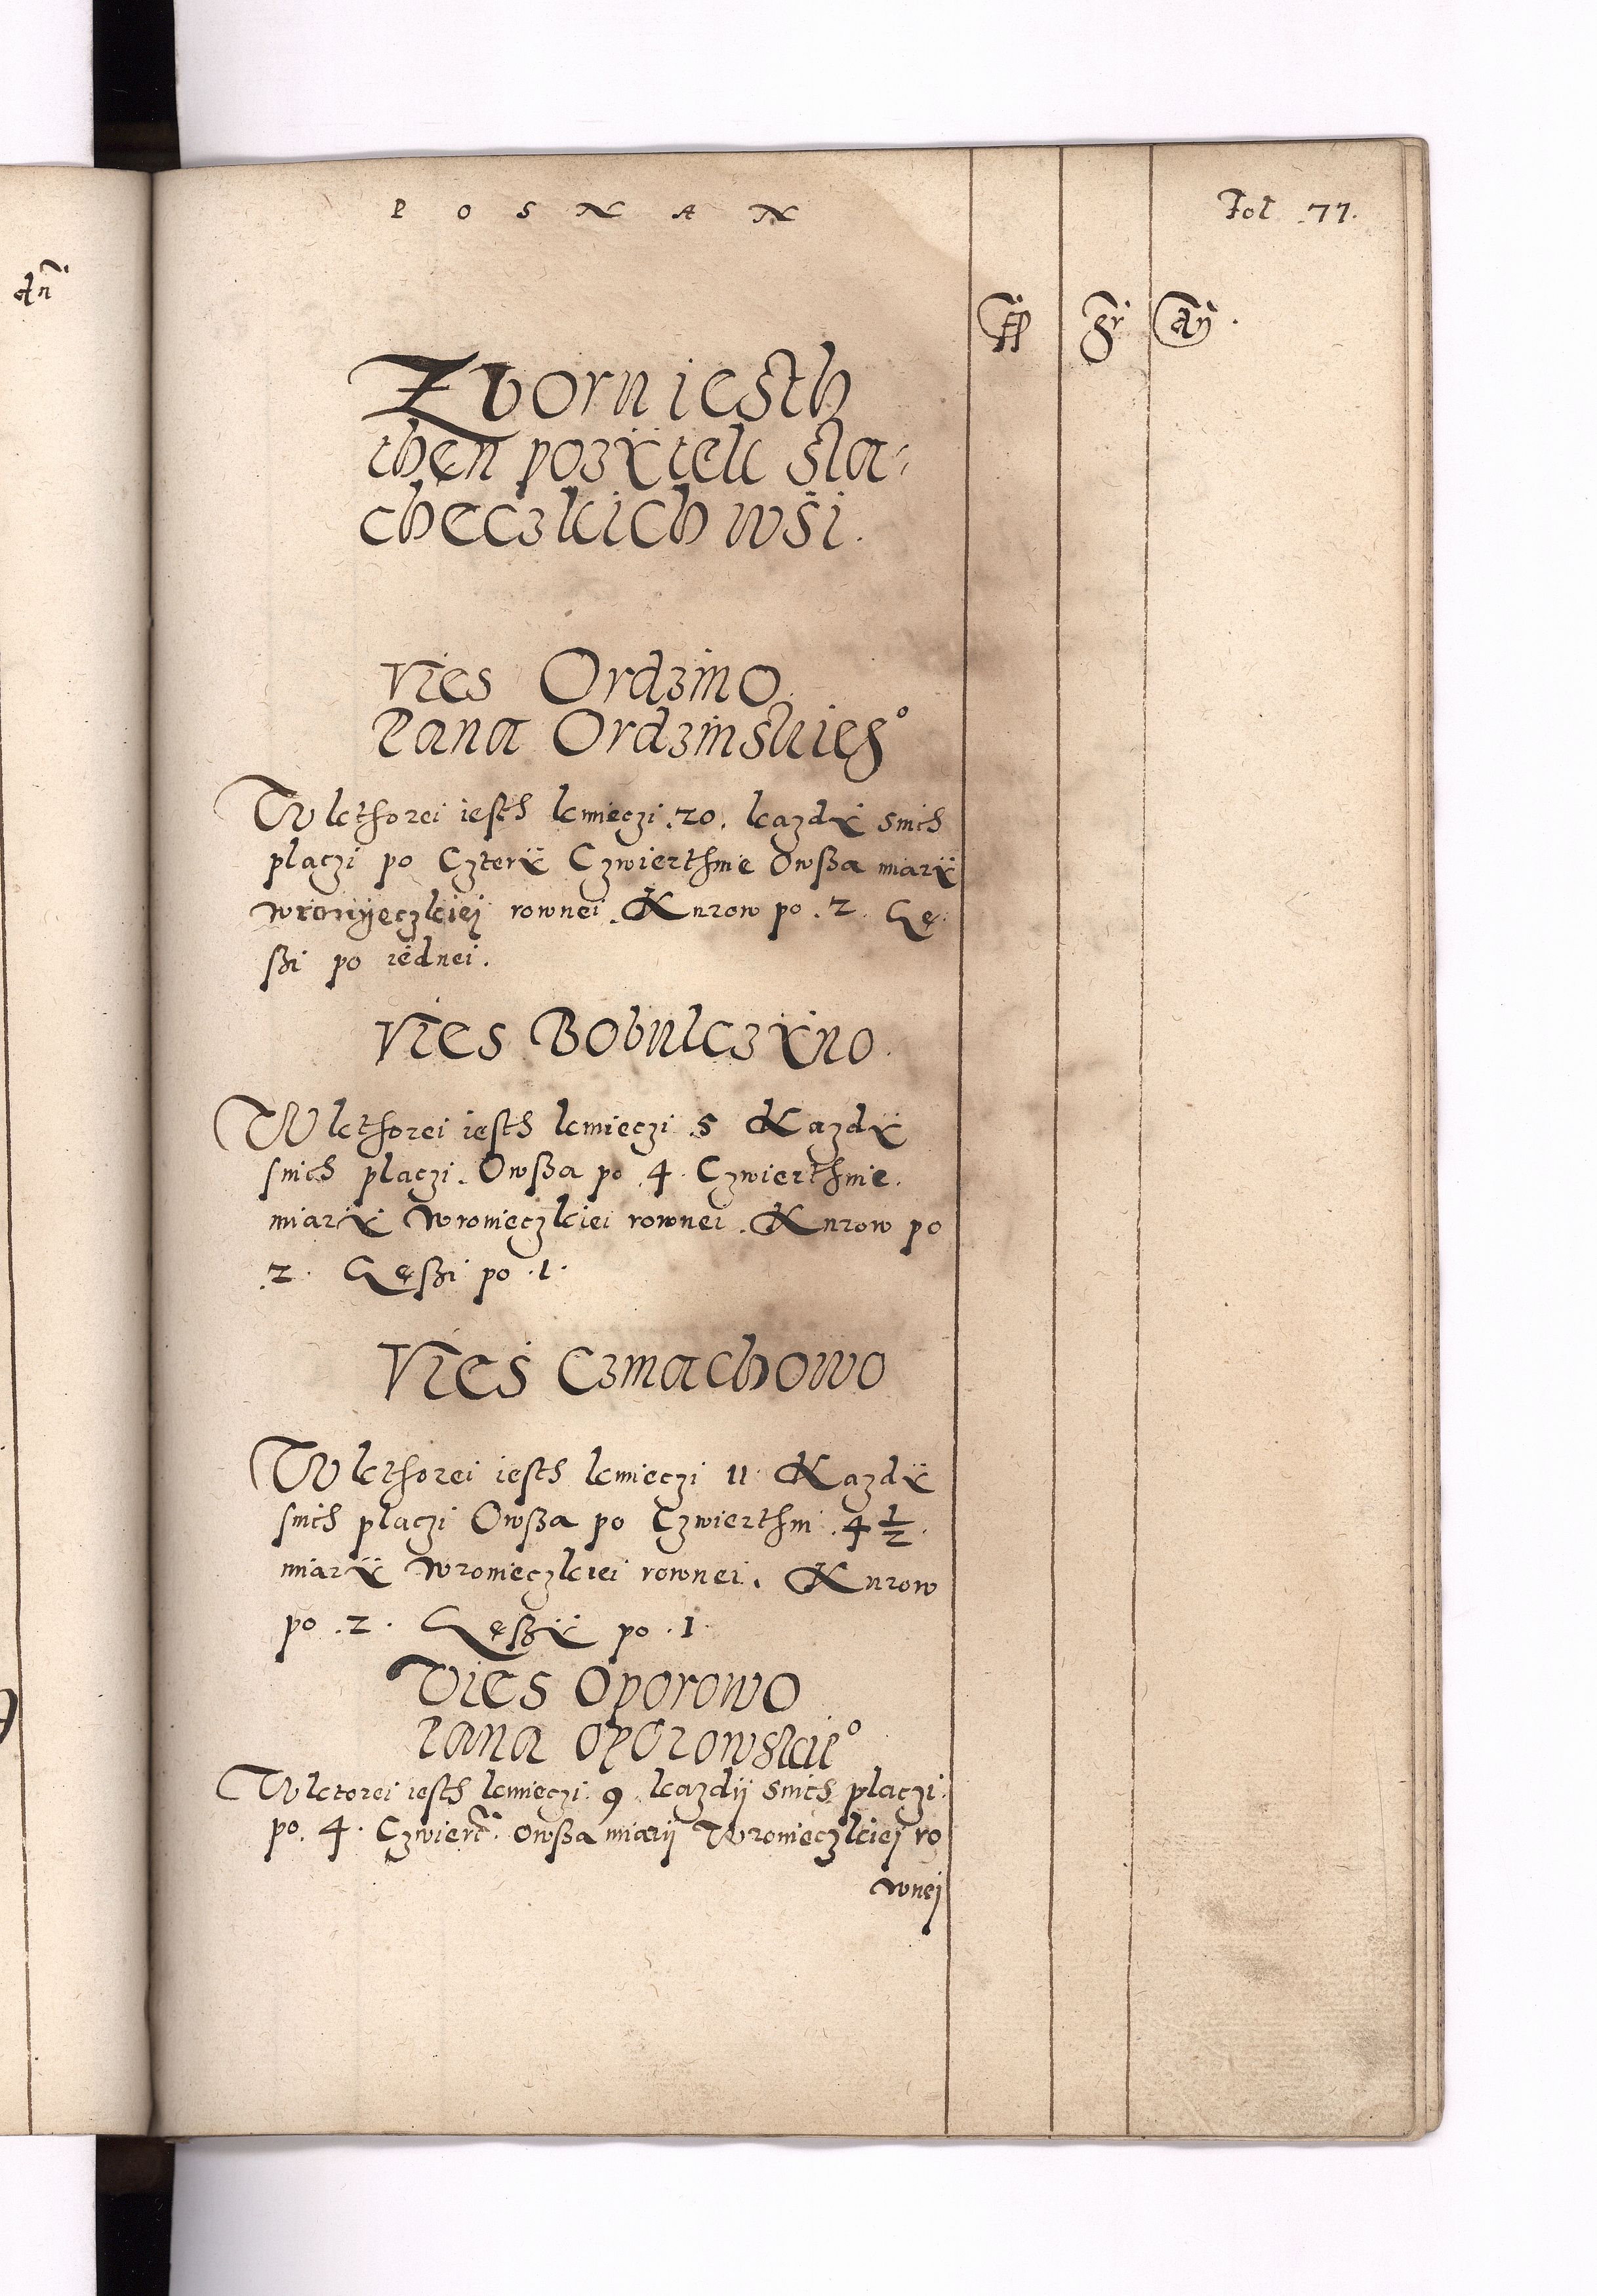 POSNAN
Fol 77.
dn̄
fl gr dn̄.
Zborn iesth
then pozÿtek sla⸗
checzkich wsi.
Vies Ordzino
Pana Ordzinskieg°
W kthorei iesth kmieczi .20. kazdÿ snich
płaczi po Czterÿ Czwierthnie Owßa miarÿ
wronÿeczkiej rownei. Kurow po .2. Gę⸗
ßi po iednei.
Vies Bobulczÿno.
W kthorei iesth kmieczi 5 Kazdÿ
snich placzi. Owßa po .4. Czwierthnie.
miarÿ Wronieczkiei rownei. Kurow po
.2. Gęßi po .1.
Vies Czmachowo
W kthorei iesth kmieczi 11 Kazdÿ
snich placzi Owßa po Czwierthni .4 1/2.
miarÿ Wronieczkiei rownei. Kurow
po .2. Gęßÿ po .1.
Vies Oporowo
Pana Oporowskie°
W ktorei iesth kmieczi .9. kazdij snich placzi.
po. 4. Czwierć. owßa miarij Wronieczkiej ro
wnej